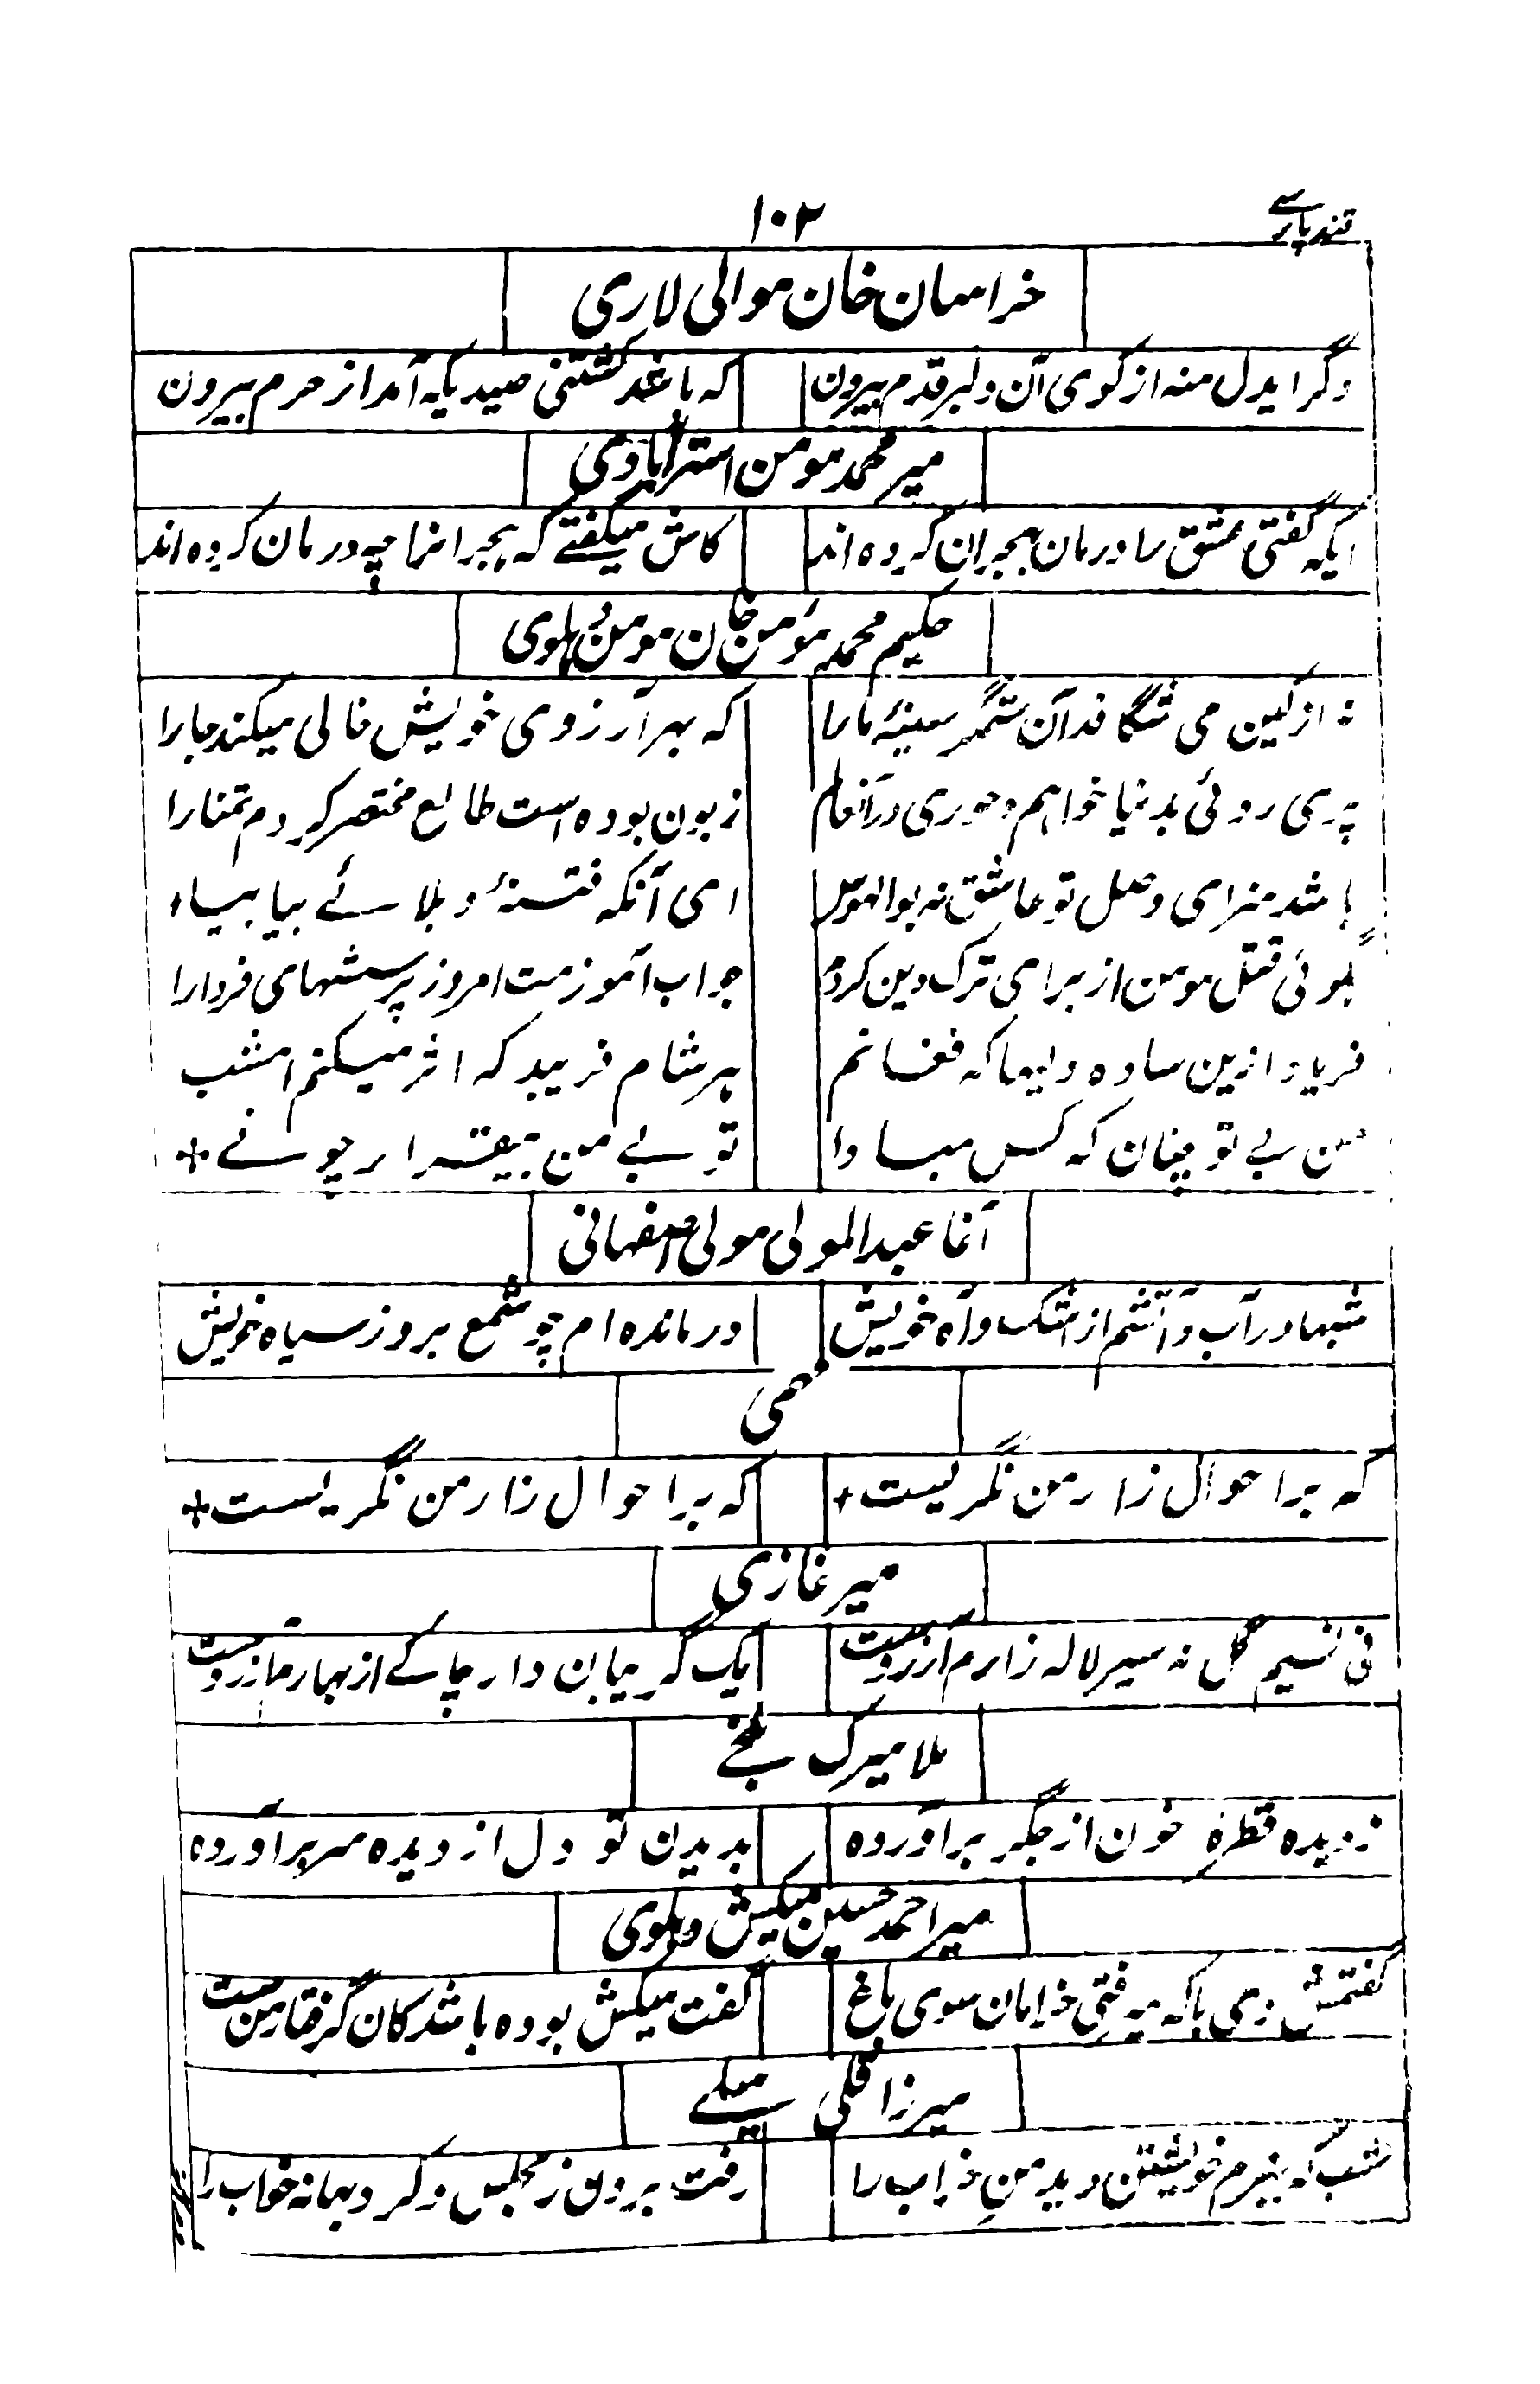 قند پارسے
۱۰۲
خراسان خان موالی لاری
دگر ایدل منه از کوی آن دلبر قدم بیرون که باشد کشتنی صید یکه آمد از حرم بیرون
میر محمد مومن استرآبادی
ایکه گفتی عشق را درمان هجران کرده اند کاش میگفتے که هجر انرا چه درمان کرده اند
حکیم محمد مومن خان مومن دہلوی
نه از کین می شگافد آن ستمگر سینۀ ما را که بهر آرزوی خویش خالی میکند جا را
پری روئی بدنیا خواهم و حوری در آنعالم زبون بوده است طالع مختصر کردم تمنا را
باشد سزای وصل تو عاشق نه بوالهوس ای آنکه فتنۀ و بلائے بیا بیا
بگوئی قتل مومن از برای ترک دین کردم جواب آموزمت امروز پرسشهای فردا را
فریاد ازین ساده دلیها که فغانم هر شام فریبد که اثر میکنم امشب
من بے تو چنان که کس مبادا تو بے من بیقرار چونے
آغا عبدالمولی مولی اصفهانی
شبها در آب و آتشم از اشک و آه خویش در مانده ام چو شمع بروز سیاه خویش
که بر احوال زار من نگریست که بر احوال زار من نگریست
میر غازی
نی نسیم گل نه سیر لاله زارم آرزوست یک گریبان دار چاکے از بهارم آرزوست
ملا میرک بلخے
ز دیده قطرۀ خون از جگر برآورده بدیدن تو دل از دیده سر برآورده
میر احمد حسین میکش دہلوی
گفتمش دی با که میرفتی خرامان سوی باغ گفت میکش بوده باشد کان گرفتار منست
میرزا قلی میلے
شب که ببزم خویشتن دید من خراب را رفت برون ز مجلس و کرد بهانه خواب را